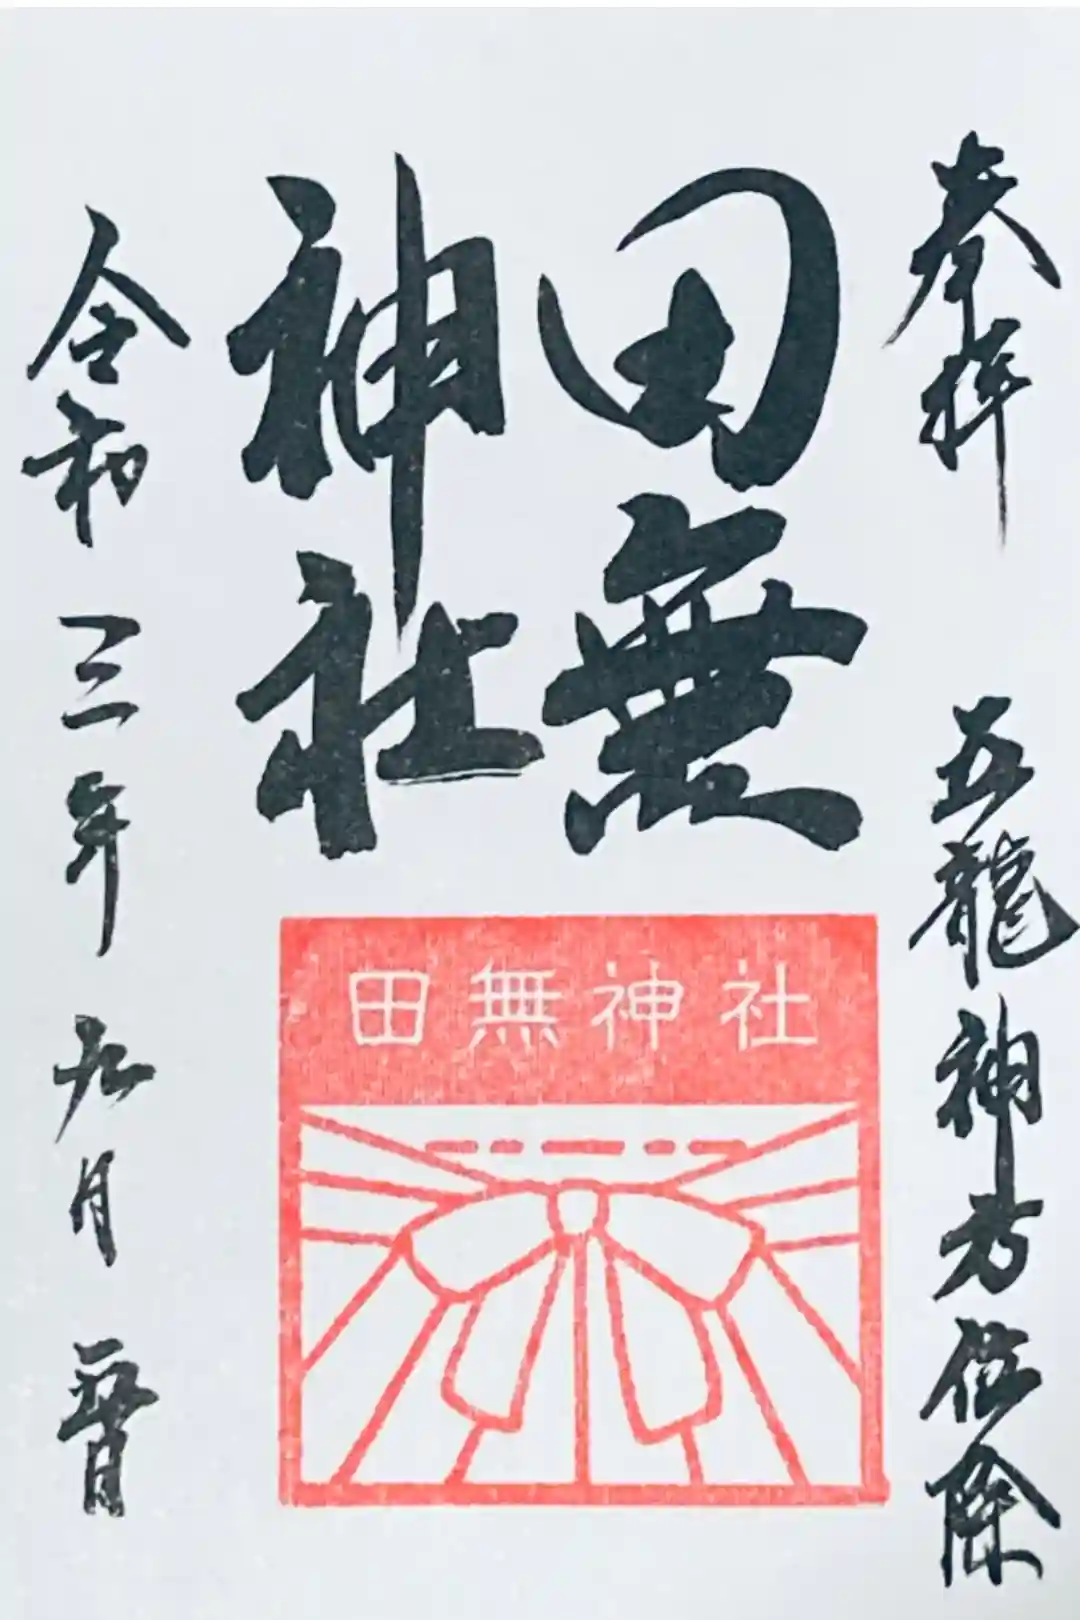 奉拝　五龍神方位除
田無
神社
令和三年九月　日
田無神社